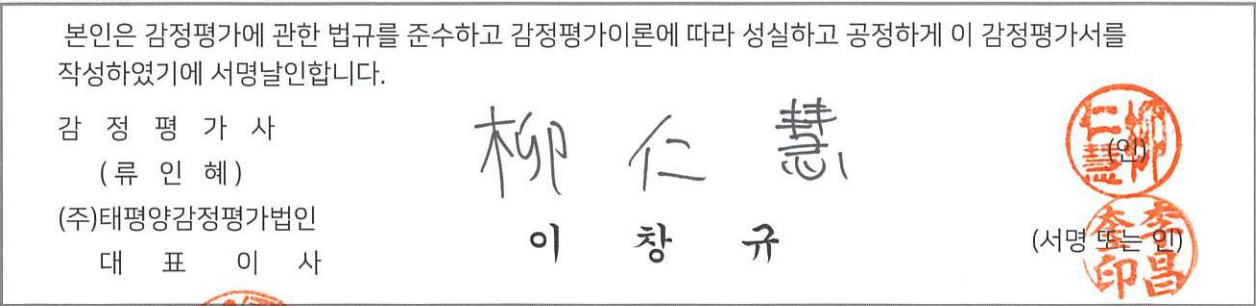 본인은 감정평가에 관한 법규를 준수하고 감정평가이론에 따라 성실하고 공정하게 이 감정평가서를
작성하였기에 서명날인합니다.
감 정 평 가 사
(류 인 혜)
柳 仁 慧
(인)
柳仁慧
(주)태평양감정평가법인
대 표 이 사
이 창 규
(서명 또는 인)
李昌奎印